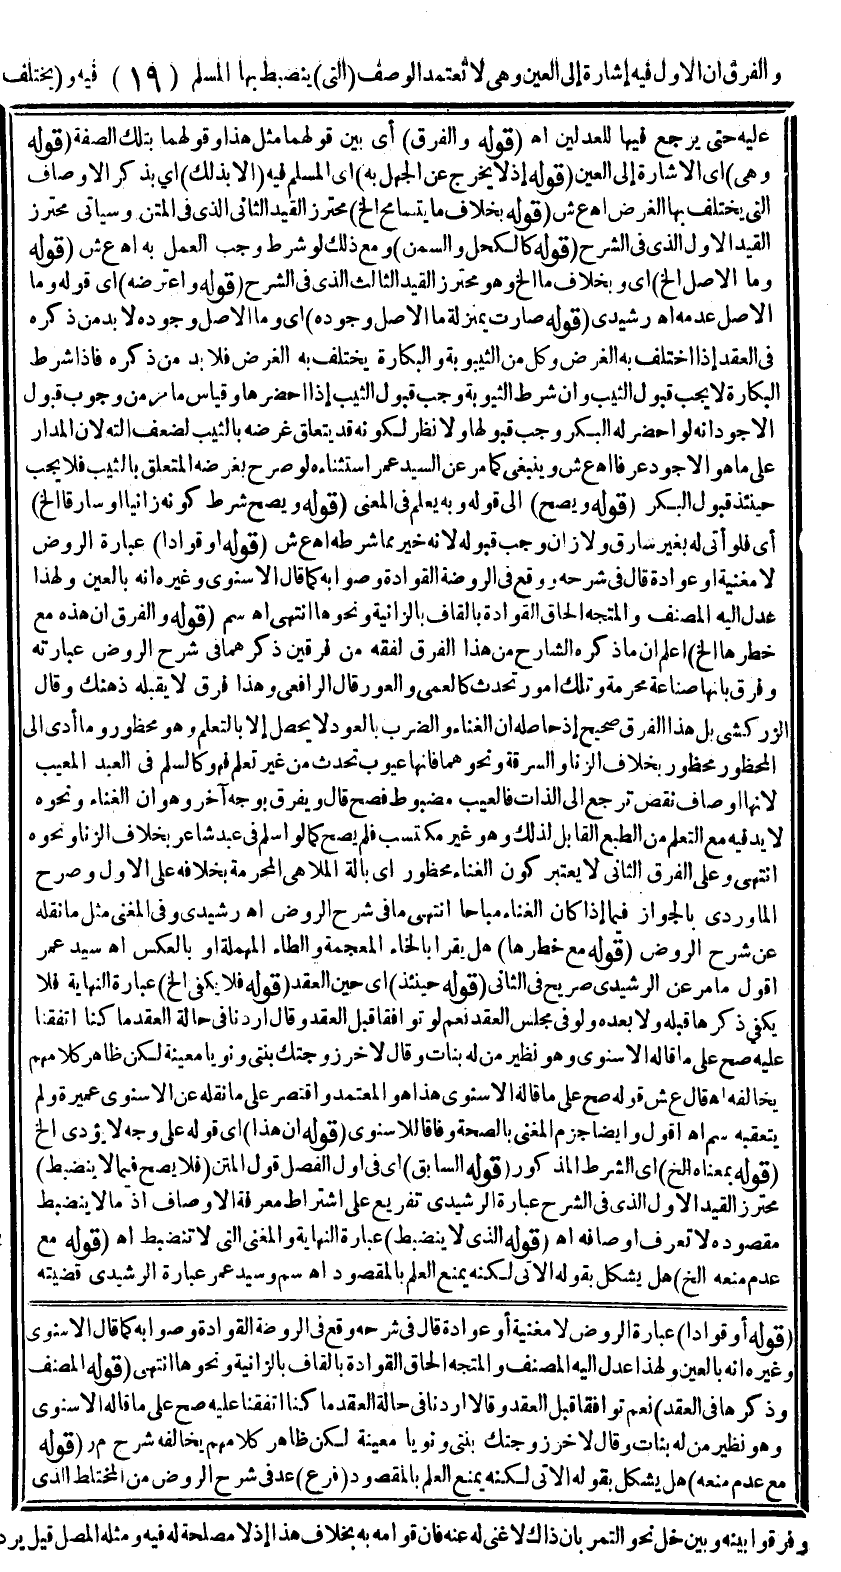 والفرق ان الاول فيه إشارة إلى العين وهى لا تعتمد الوصف (التى) ينضبط بها المسلم (١٩) فيه و(يختلف
عليه حتى يرجع فيها للعدلين اه (قوله والفرق) أى بين قولهما مثل هذا وقولهما بتلك الصفة (قوله
وهى) اى الاشارة إلى العين (قوله إذ لا يخرج عن الجهل به) اى المسلم فيه (الا بذلك) اي بذكر الاوصاف
التى يختلف بها الغرض اه ع ش (قوله بخلاف ما يتسامح الخ) محترز القيد الثانى الذى فى المتن وسياتى محترز
القيد الاول الذى فى الشرح (قوله كالكحل والسمن) ومع ذلك لو شرط وجب العمل به اه ع ش (قوله
وما الاصل الخ) اى وبخلاف ما الخ وهو محترز القيد الثالث الذى فى الشرح (قوله واعترضه) اى قوله وما
الاصل عدمه اه رشيدى (قوله صارت بمنزلة ما الاصل وجوده) اى وما الاصل وجوده لا بد من ذكره
فى العقد إذا اختلف به الغرض وكل من الثيوبة والبكارة يختلف به الغرض فلا بد من ذكره فاذا شرط
البكارة لا يجب قبول الثيب وان شرط الثيوبة وجب قبول الثيب إذا احضرها وقياس ما مر من وجوب قبول
الاجود انه لو احضر له البكر وجب قبولها ولا نظر لكونه قد يتعلق غرضه بالثيب لضعف الته لان المدار
على ما هو الاجود عرفا اه ع ش وينبغى كما مر عن السيد عمر استثناءه لو صرح بغرضه المتعلق بالثيب فلا يجب
حينئذ قبول البكر (قوله ويصح) الى قوله وبه يعلم فى المعنى (قوله ويصح شرط كونه زانيا او سارقا الخ)
أى فلو أتى له بغير سارق ولا زان وجب قبوله لانه خير مما شرطه اه ع ش (قوله او قوادا) عبارة الروض
لا مغنية او عوادة قال فى شرحه وقع فى الروضة القوادة وصوابه كما قال الاسنوى وغيره انه بالعين ولهذا
عدل اليه المصنف والمتجه الحاق القوادة بالقاف بالزانية ونحوها انتهى اه سم (قوله والفرق ان هذه مع
خطرها الخ) اعلم ان ما ذكره الشارح من هذا الفرق لفقه من فرقين ذكرهما فى شرح الروض عبارته
وفرق بانها صناعة محرمة وتلك امور تحدث كالعمى والعور قال الرافعى وهذا فرق لا يقبله ذهنك وقال
الزركشى بل هذا الفرق صحيح إذ حاصله ان الغناء والضرب بالعود لا يحصل إلا بالتعلم وهو محظور وما أدى الى
المحظور محظور بخلاف الزنا والسرقة ونحوهما فانها عيوب تحدث من غير تعلم فهو كالسلم فى العبد المعيب
لانها اوصاف نقص ترجع الى الذات فالعيب مضبوط فصح قال ويفرق بوجه آخر وهو ان الغناء ونحوه
لا بد فيه مع التعلم من الطبع القابل لذلك وهو غير مكتسب فلم يصح كما لو اسلم فى عبد شاعر بخلاف الزنا ونحوه
انتهى وعلى الفرق الثانى لا يعتبر كون الغناء محظور اى بالة الملاهى المحرمة بخلافه على الاول وصرح
الماوردى بالجواز فيما إذا كان الغناء مباحا انتهى ما فى شرح الروض اه رشيدى وفى المغنى مثل ما نقله
عن شرح الروض (قوله مع خطرها) هل يقرا بالخاء المعجمة والطاء المهملة او بالعكس اه سيد عمر
اقول ما مر عن الرشيدى صريح فى الثانى (قوله حينئذ) اى حين العقد (قوله فلا يكفى الخ) عبارة النهاية فلا
يكفى ذكرها قبله ولا بعده ولو فى مجلس العقد نعم لو توافقا قبل العقد وقال اردنا فى حالة العقد ما كنا اتفقنا
عليه صح على ما قاله الاسنوى وهو نظير من له بنات وقال لاخر زوجتك بنتى ونويا معينة لكن ظاهر كلامهم
يخالفه اه قال ع ش قوله صح على ما قاله الاسنوى هذا هو المعتمد واقتصر على ما نقله عن الاسنوى عميرة ولم
يتعقبه سم اه اقول وايضا جزم المغنى بالصحة وفاقا للاسنوى (قوله ان هذا) اى قوله على وجه لا يؤدى الخ
(قوله بمعناه الخ) اى الشرط المذكور (قوله السابق) اى فى اول الفصل قول المتن (فلا يصح فيما لا ينضبط)
محترز القيد الاول الذى فى الشرح عبارة الرشيدى تفريع على اشتراط معرفة الاوصاف اذ ما لا ينضبط
مقصوده لا تعرف اوصافه اه (قوله الذى لا ينضبط) عبارة النهاية والمغنى التى لا تنضبط اه (قوله مع
عدم منعه الخ) هل يشكل بقوله الاتى لكنه يمنع العلم بالمقصود اه سم وسيد عمر عبارة الرشيدى قضيته
(قوله أو قوادا) عبارة الروض لا مغنية أو عوادة قال فى شرحه وقع فى الروضة القوادة وصوابه كما قال الاسنوى
وغيره انه بالعين ولهذا عدل اليه المصنف والمتجه الحاق القوادة بالقاف بالزانية ونحوها انتهى (قوله المصنف
وذكرها فى العقد) نعم توافقا قبل العقد وقالا اردنا فى حالة العقد ما كنا اتفقنا عليه صح على ما قاله الاسنوى
وهو نظير من له بنات وقال لاخر زوجتك بنتى ونويا معينة لكن ظاهر كلامهم يخالفه شرح مر (قوله
مع عدم منعه) هل يشكل بقوله الاتى لكنه يمنع العلم بالمقصود (فرع) عد فى شرح الروض من المختلط الذى
وفرقوا بينه وبين خل نحو التمر بان ذاك لا غنى له عنه فان قوامه به بخلاف هذا إذ لا مصلحة له فيه ومثله المصل قيل يرد